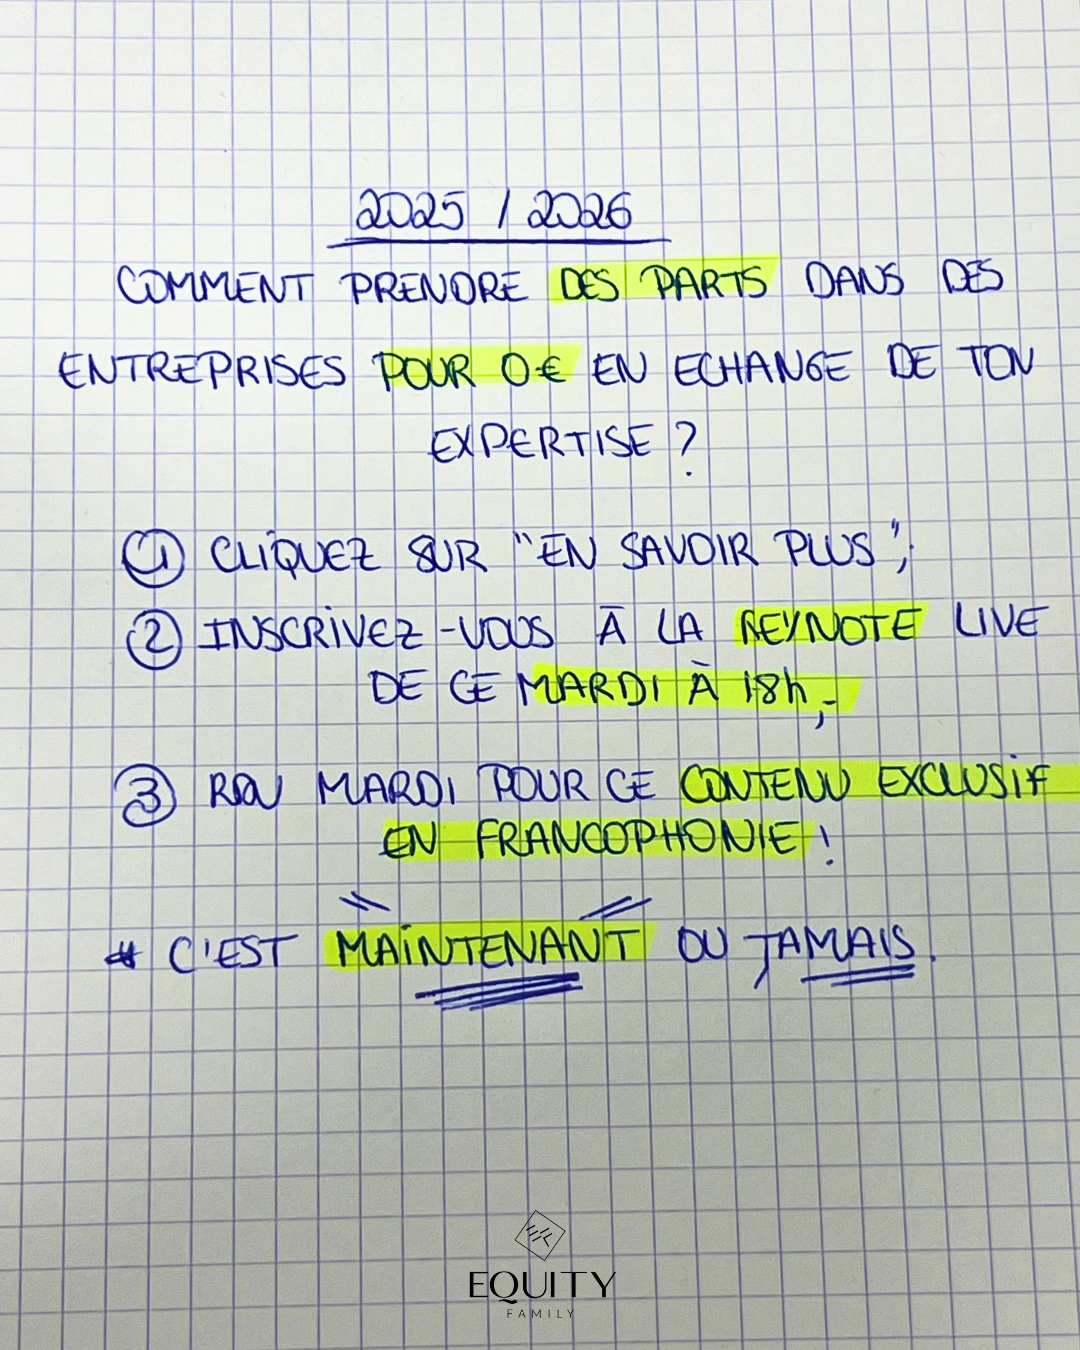 2025 / 2026
COMMENT PRENDRE DES PARTS DANS DES
ENTREPRISES POUR 0€ EN ECHANGE DE TON
EXPERTISE ?
① CLIQUEZ SUR "EN SAVOIR PLUS";
② INSCRIVEZ-VOUS À LA KEYNOTE LIVE
DE CE MARDI À 18h,-
③ RDV MARDI POUR CE CONTENU EXCLUSIF
EN FRANCOPHONIE !
# C'EST MAINTENANT OU JAMAIS.
EQUITY
FAMILY